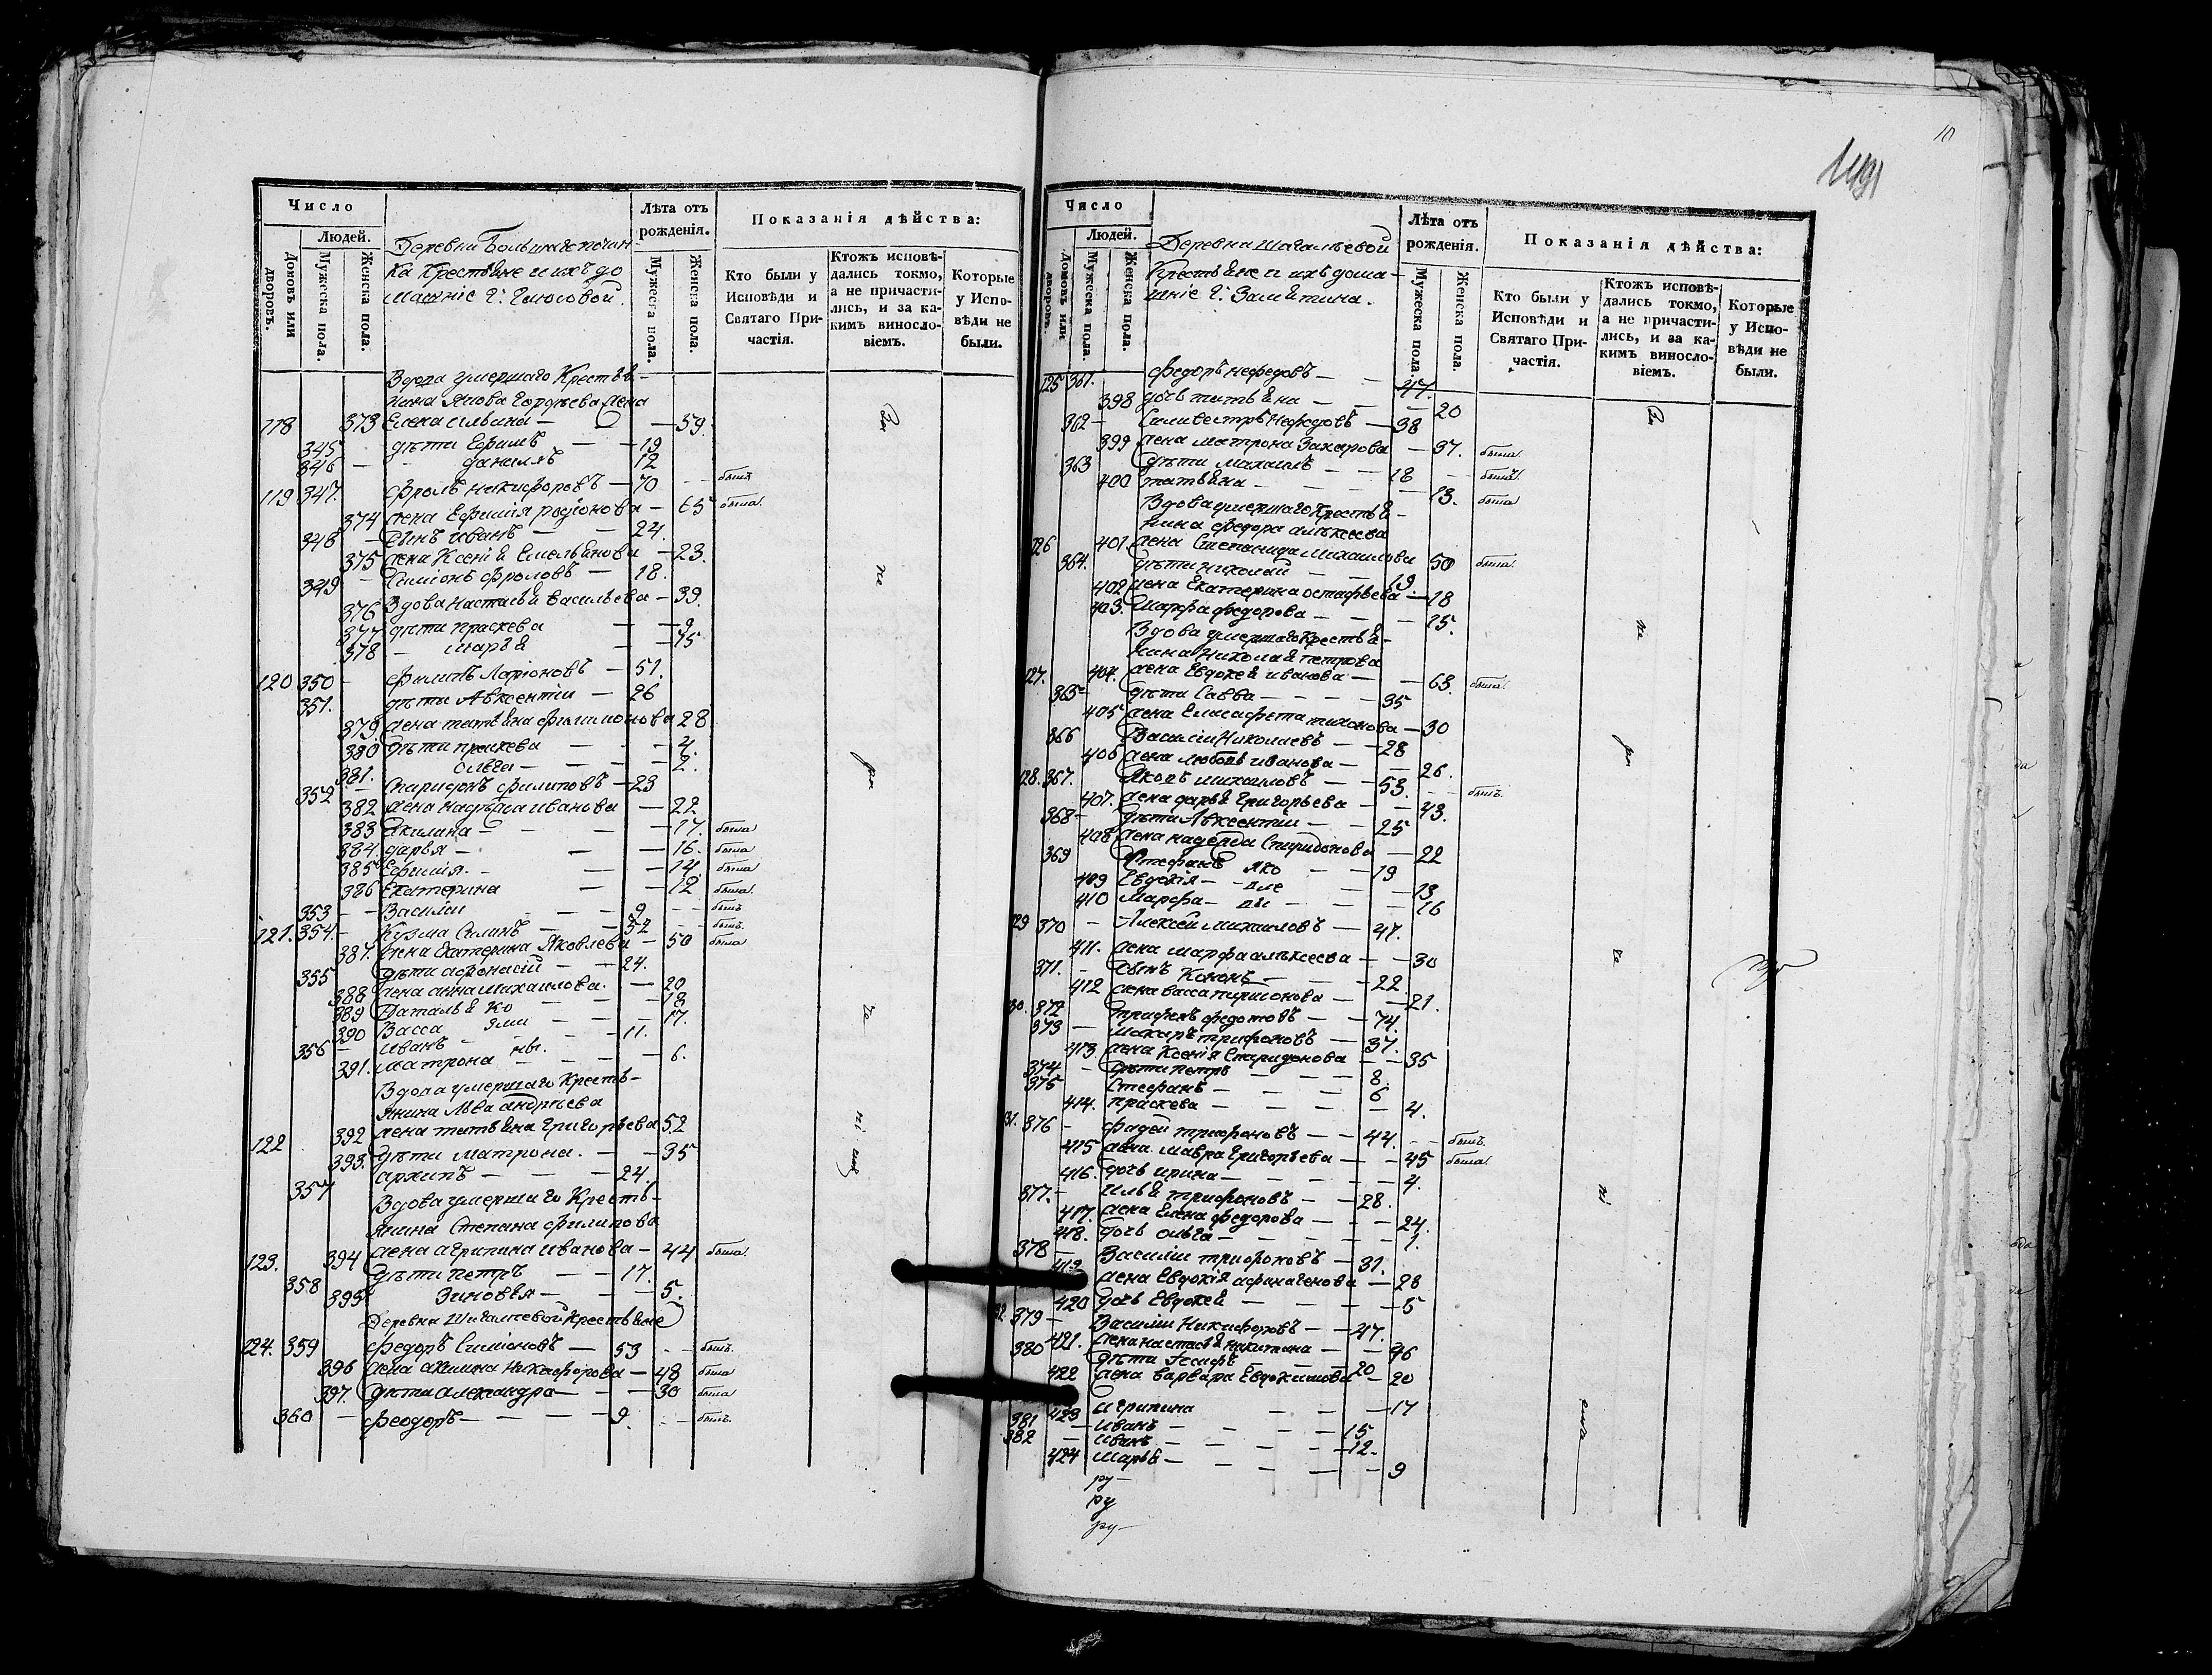 Число
Людей.
Домовъ или дворовъ.
Мужеска пола.
Женска пола.
Деревни Большаго почин-
ка Крестьяне и ихъ до
машніе Г.
Лѣта отъ рожденія.
Мужеска пола.
Женска пола.
Показанія дѣйства:
Кто были у Исповѣди и Святаго Причастія.
Ктожъ исповѣдались токмо, а не причастились, и за какимъ винословіемъ.
Которые у Исповѣди не были.
Вдова умершаго Крестья-
нина
118 373 Елена Ильина — 59.
345 дѣти Ефимъ — 19
346 — Данилъ 12
119 347. Фролъ Никифоровъ — 70 былъ
374 жена Ефимія Родіонова — 65 была.
348 — сынъ Иванъ — 24.
375 жена Ксенія Емельянова — 23.
349 — Симіонъ Фроловъ — 18.
376 Вдова Настасья Васильева — 39.
377 дѣти Праскева — 9
378 — Марья — 15
120 350 — Филипъ Ларіоновъ — 51.
351. дѣти Авксентіи — 26
379. жена Татьяна Филимонова 28
380 дѣти Праскева — 4.
381. Ольга — 2.
352 — Спиридонъ Филиповъ — 23
382 жена Надежда Иванова — 22
383 Акилина — 17. была
384. Дарья — 16. была
385 Ефимія. — 14. была
386 Екатерина — 12. была.
353 — Василіи — 9 былъ
121. 354. — Кузма Силинъ — 52 былъ.
387. жена Екатерина Яковлева — 50 была
355 дѣти Афонасіи — 24.
388 жена Анна Михаилова. — 20
389 Наталья Ко — 18
390 Васса зми — 17.
356 — Иванъ — 11.
391. Матрона ны. — 6.
Вдова умершаго Кресть-
янина Льва Андреева
122 392 жена Татьяна Григорьева 52
393. дѣти Матрона. — 35
357 Архипъ — 24.
Вдова умершаго Кресть-
янина Степана Филипова
123. 394 жена Агрипина Иванова — 44 была.
358 дѣти Петръ — 17.
395 Зиновья — 5.
Деревни Шигалевой Крестьяне
124. 359 Федоръ Симіоновъ — 53 былъ.
396 жена Акилина Никифорова — 48 была
397. дѣти Александра — 30 была
360 — Феодоръ — 9. былъ.
За
не
ра
че
ні
емъ
10
1491
Число
Людей.
Домовъ или дворовъ.
Мужеска пола.
Женска пола.
Деревни Шигалевой
Крестьяне и ихъ дома-
шніе Г. Замятина.
Лѣта отъ рожденія.
Мужеска пола.
Женска пола.
Показанія дѣйства:
Кто были у Исповѣди и Святаго Причастія.
Ктожъ исповѣдались токмо, а не причастились, и за какимъ винословіемъ.
Которые у Исповѣди не были.
125 361. Федоръ Нефедовъ — 47.
398 дочь Татьяна — 20
362 — Силивестръ Нефедовъ — 38
399 жена Матрона Захарова — 37. была.
363 дѣти Михаилъ — 16 былъ.
400 Татьяна — 13. была
Вдова умершаго Крестья-
нина Федора Алексеева
126 401 жена Степанида Михаилова 50 была.
364. дѣти Николаи — 19.
402 жена Екатерина Остафьева — 18
403. Марфа Федорова — 15.
Вдова умершаго Крестья-
нина Николая Петрова
127. 404. жена Евдокея Иванова — 63. была.
365 дѣти Савва — 35
405 жена Елисафета Тихонова — 30
366 Василіи Николаевъ — 28
406 жена Любовь Иванова — 26.
128. 367. Яковъ Михаиловъ — 53. былъ.
407. жена Дарья Григорьева — 43.
368 — дѣти Авксентіи — 25
408 жена Надежда Спиридонова — 22
369 Стефанъ Яко — 19
409 Евдокія — вле — 13
410 Марфа — вы — 16
129 370 — Алексеи Михаиловъ — 47.
411. жена Марфа Алексеева — 30
371. — сынъ Кононъ — 22
412 жена Васса — 21.
130. 372 Трифонъ Федотовъ — 74.
373 — Макаръ Трифоновъ — 37.
413. жена Ксенія Спиридонова — 35
374 — дѣти Петръ — 8.
375 Стефанъ — 6
414. Праскева — 4.
131. 376 — Фадеи Трифоновъ — 44. былъ.
415 жена Мавра Григорьева — 45 была.
416. дочь Ирина — 4.
377. — Илья Трифоновъ — 28.
417. жена Елена Федорова — 24.
418. дочь Ольга — 1.
378 — Василіи Трифоновъ — 31.
419 жена Евдокія — 28
420 дочь Евдокея — 5
132. 379 — Василіи Никифоровъ — 47.
421. жена Настасья Никитина — 46
380 дѣти — 20
422 жена Варвара Евдокимова — 20
423 Агрипина — 17
381 — Иванъ — 15
382 — Иванъ — 12.
424 Марья — 9
ру —
ру
ру —
За
не
ра
че
ні
емъ